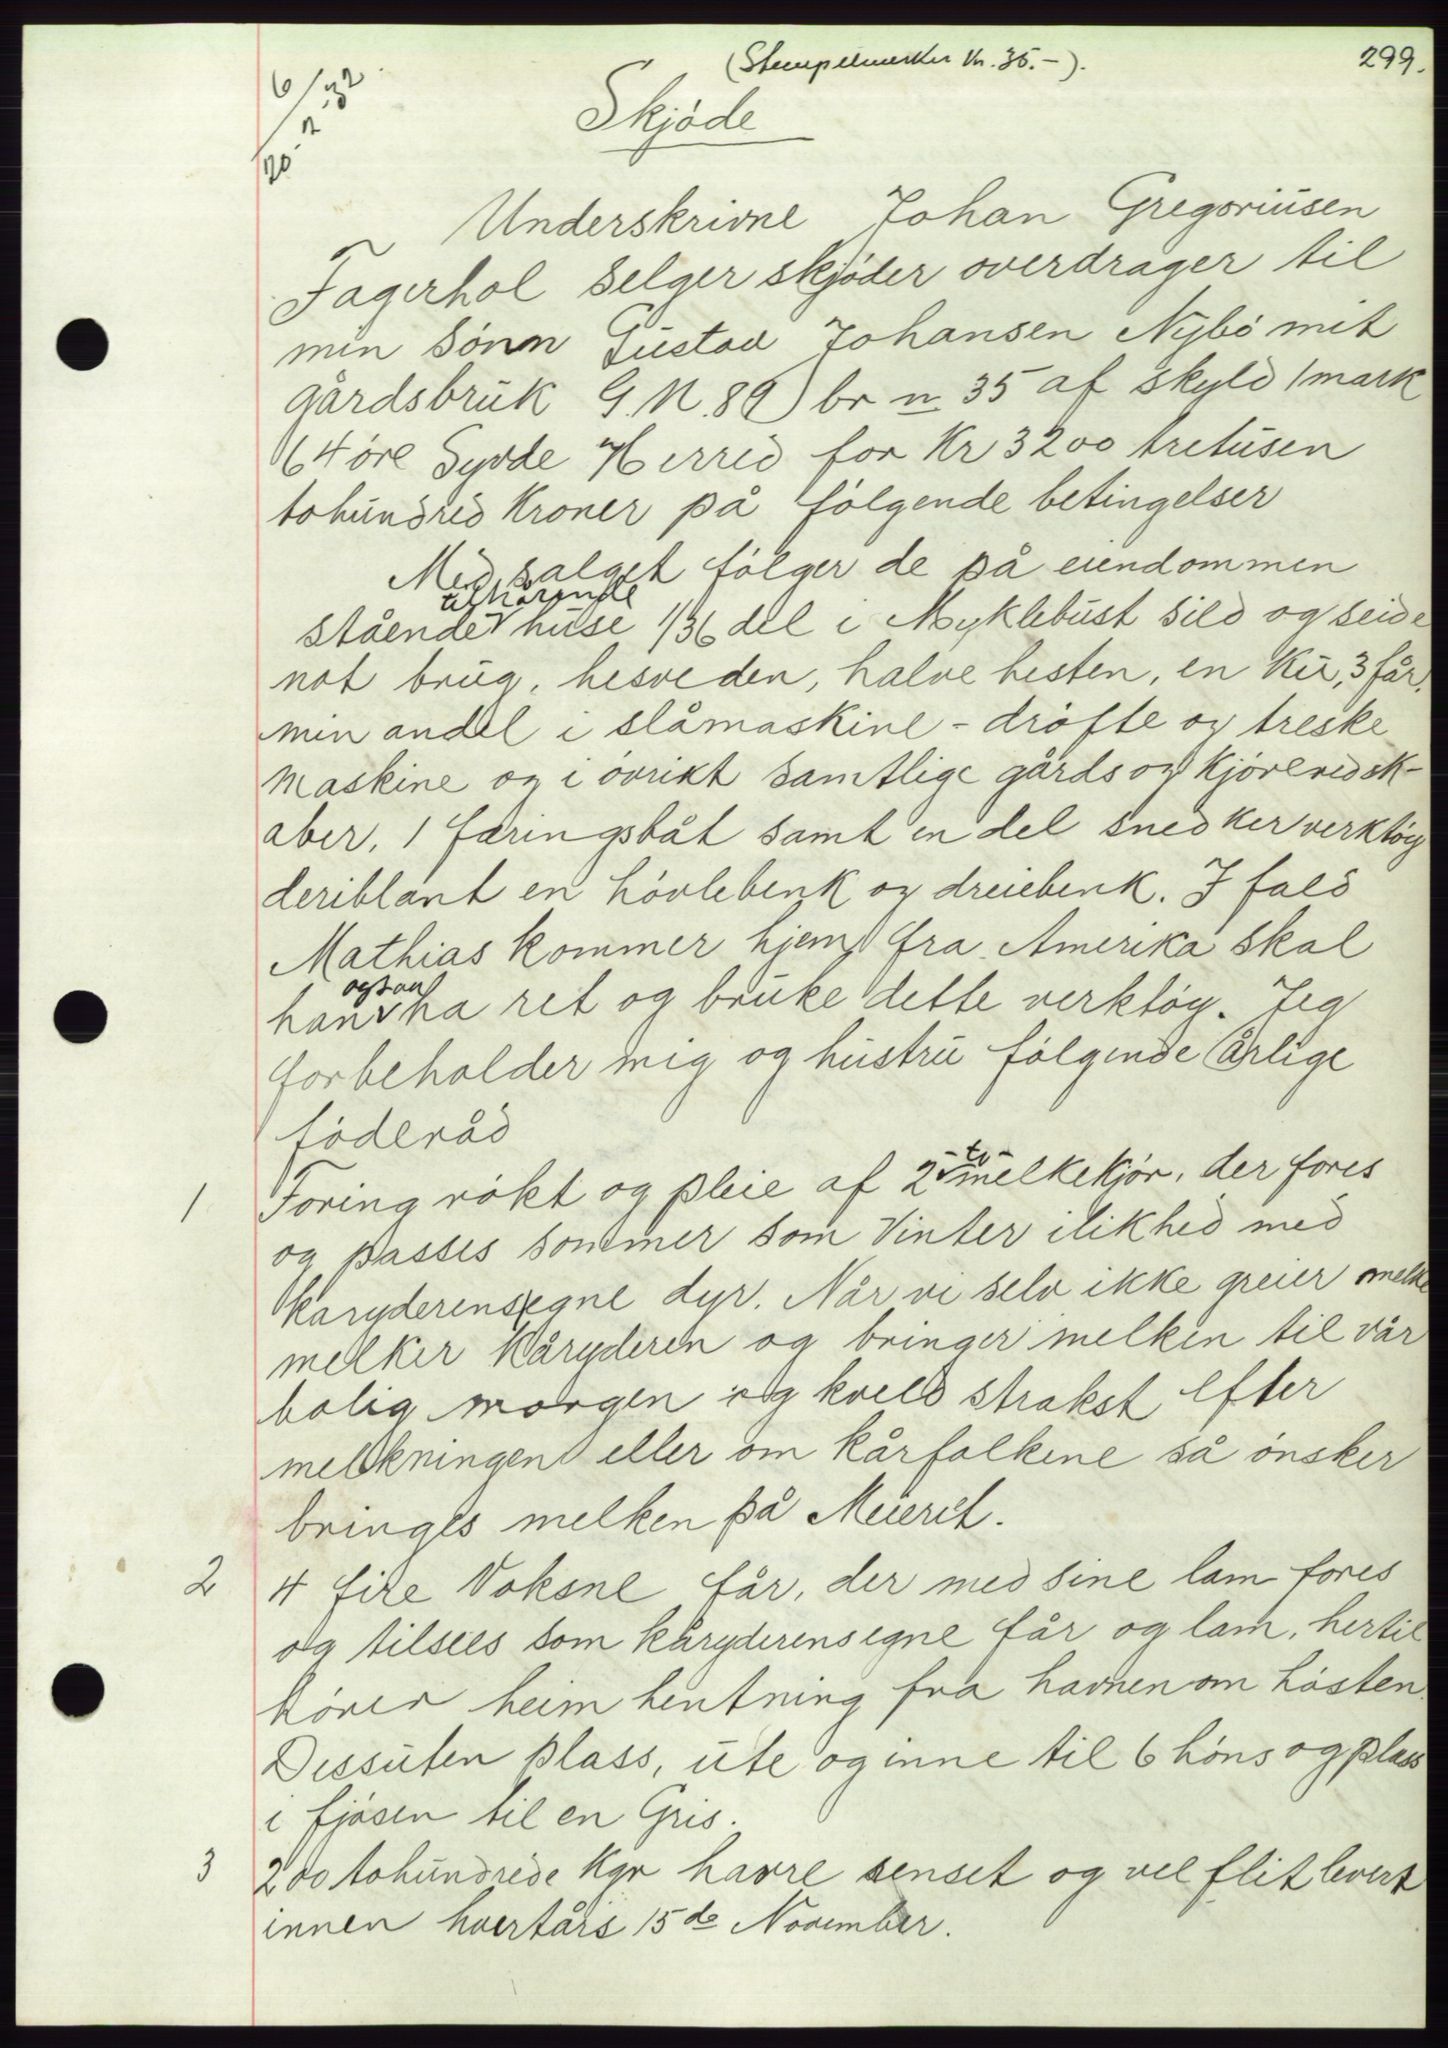 (Stempelmerker Kr. 35.-).
299.
6/20-2-32
Skjøde
Underskrivne Johan Gregoriusen
Fagerhol selger skjøder overdrager til
min sønn Gustav Johansen Nybø mit
gårdsbruk G.N. 89 br n 35 af skyld 1 mark
64 øre Syvde Herred for Kr 3200 tretusen
tohundred Kroner på følgende betingelser
Med salget følger de på eiendommen
tilhørende
stående huse 1/36 del i Myklebust sild og seide
not brug, hesveden, halve hesten, en Ku, 3 får,
min andel i slåmaskine - drøfte og treske
maskine og i øvrikt samtlige gårds og Kjøreredsk-
aber, 1 færingsbåt samt en del snedker verktøy
deriblant en høvlebenk og dreiebenk. I fald
Mathias kommer hjem fra Amerika skal
ogsaa
han ha ret og bruke dette verktøy. Jeg
forbeholder mig og hustru følgende årlige
føderåd
1 Foring røkt og pleie af 2 -to- melkekjør, der fores
og passes sommer som Vinter ilikhed med
karyderens egne dyr. Når vi selv ikke greier melke
melker Kåryderen og bringer melken til vår
bolig morgen og kveld strakst efter
melkningen eller om kårfolkene så ønsker
bringes melken på Meieret.
2 4 fire Voksne får, der med sine lam fores
og tilsees som kåryderens egne får og lam, hertil
hører heim hentning fra havnen om høsten.
Dessuten plass, ute og inne til 6 høns og plass
i fjøsen til en Gris.
3 200 tohundrede Kgr havre senset og vel flit levert
innen hvertårs 15de November.